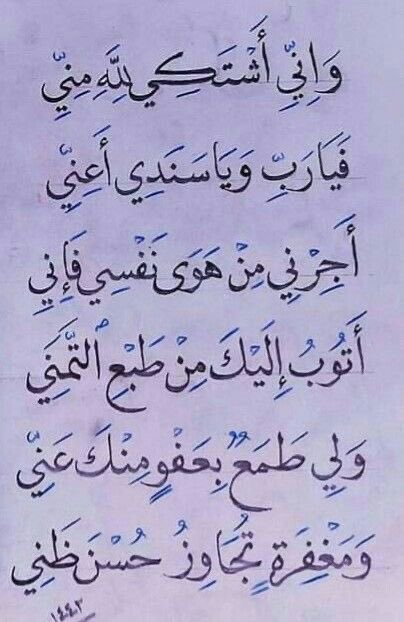 وَإِنِّي أَشْتَكِي لِلَّهِ مِنِّي
فَيَا رَبِّ وَيَا سَنَدِي أَعِنِّي
أَجِرْنِي مِنْ هَوَى نَفْسِي فَإِنِي
أَتُوبُ إِلَيْكَ مِنْ طَبْعِ التَّمَنِي
وَلِي طَمَعٌ بِعَفْوٍ مِنْكَ عَنِّي
وَمَغْفِرَةٍ تُجَاوِزُ حُسْنَ ظَنِي
١٤٤٣